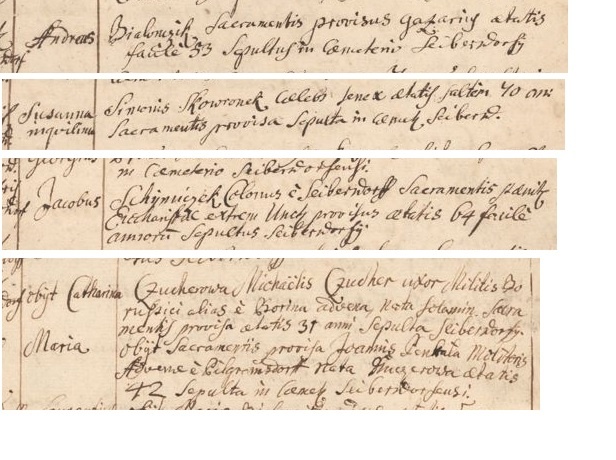 Andreas Bialonczik Sacramentis provisus gazarius ætatis
facile 53 Sepultus in Cæmeterio Seiberdorfÿ
Susanna Simonis Skowronek Cælebs senex ætatis saltem 70 ann
inquilina Sacramentis provisa sepulta in cæmet Seiberd.
in Cæmeterio Seiberdorfensi.
Jacobus Colonus è Seiberdorff Sacramentis pænit
Eucharistiæ extrem Unct provisus ætatis 64 facile
annorũ Sepultus Seiberdorfÿ
obÿt Catharina Czucherowa Michaelis Czucher uxor Militis Bo
alias è Borina advena Nata Sacra
mentis provisa ætatis 31 anni Sepulta Seiberdorfÿ.
Maria obÿt Sacramentis provisa Joannis Penkala Molitoris
Advenæ è Pilgramsdorf Nata ætatis
42 Sepulta in Cæmet Seiberdorfensi.